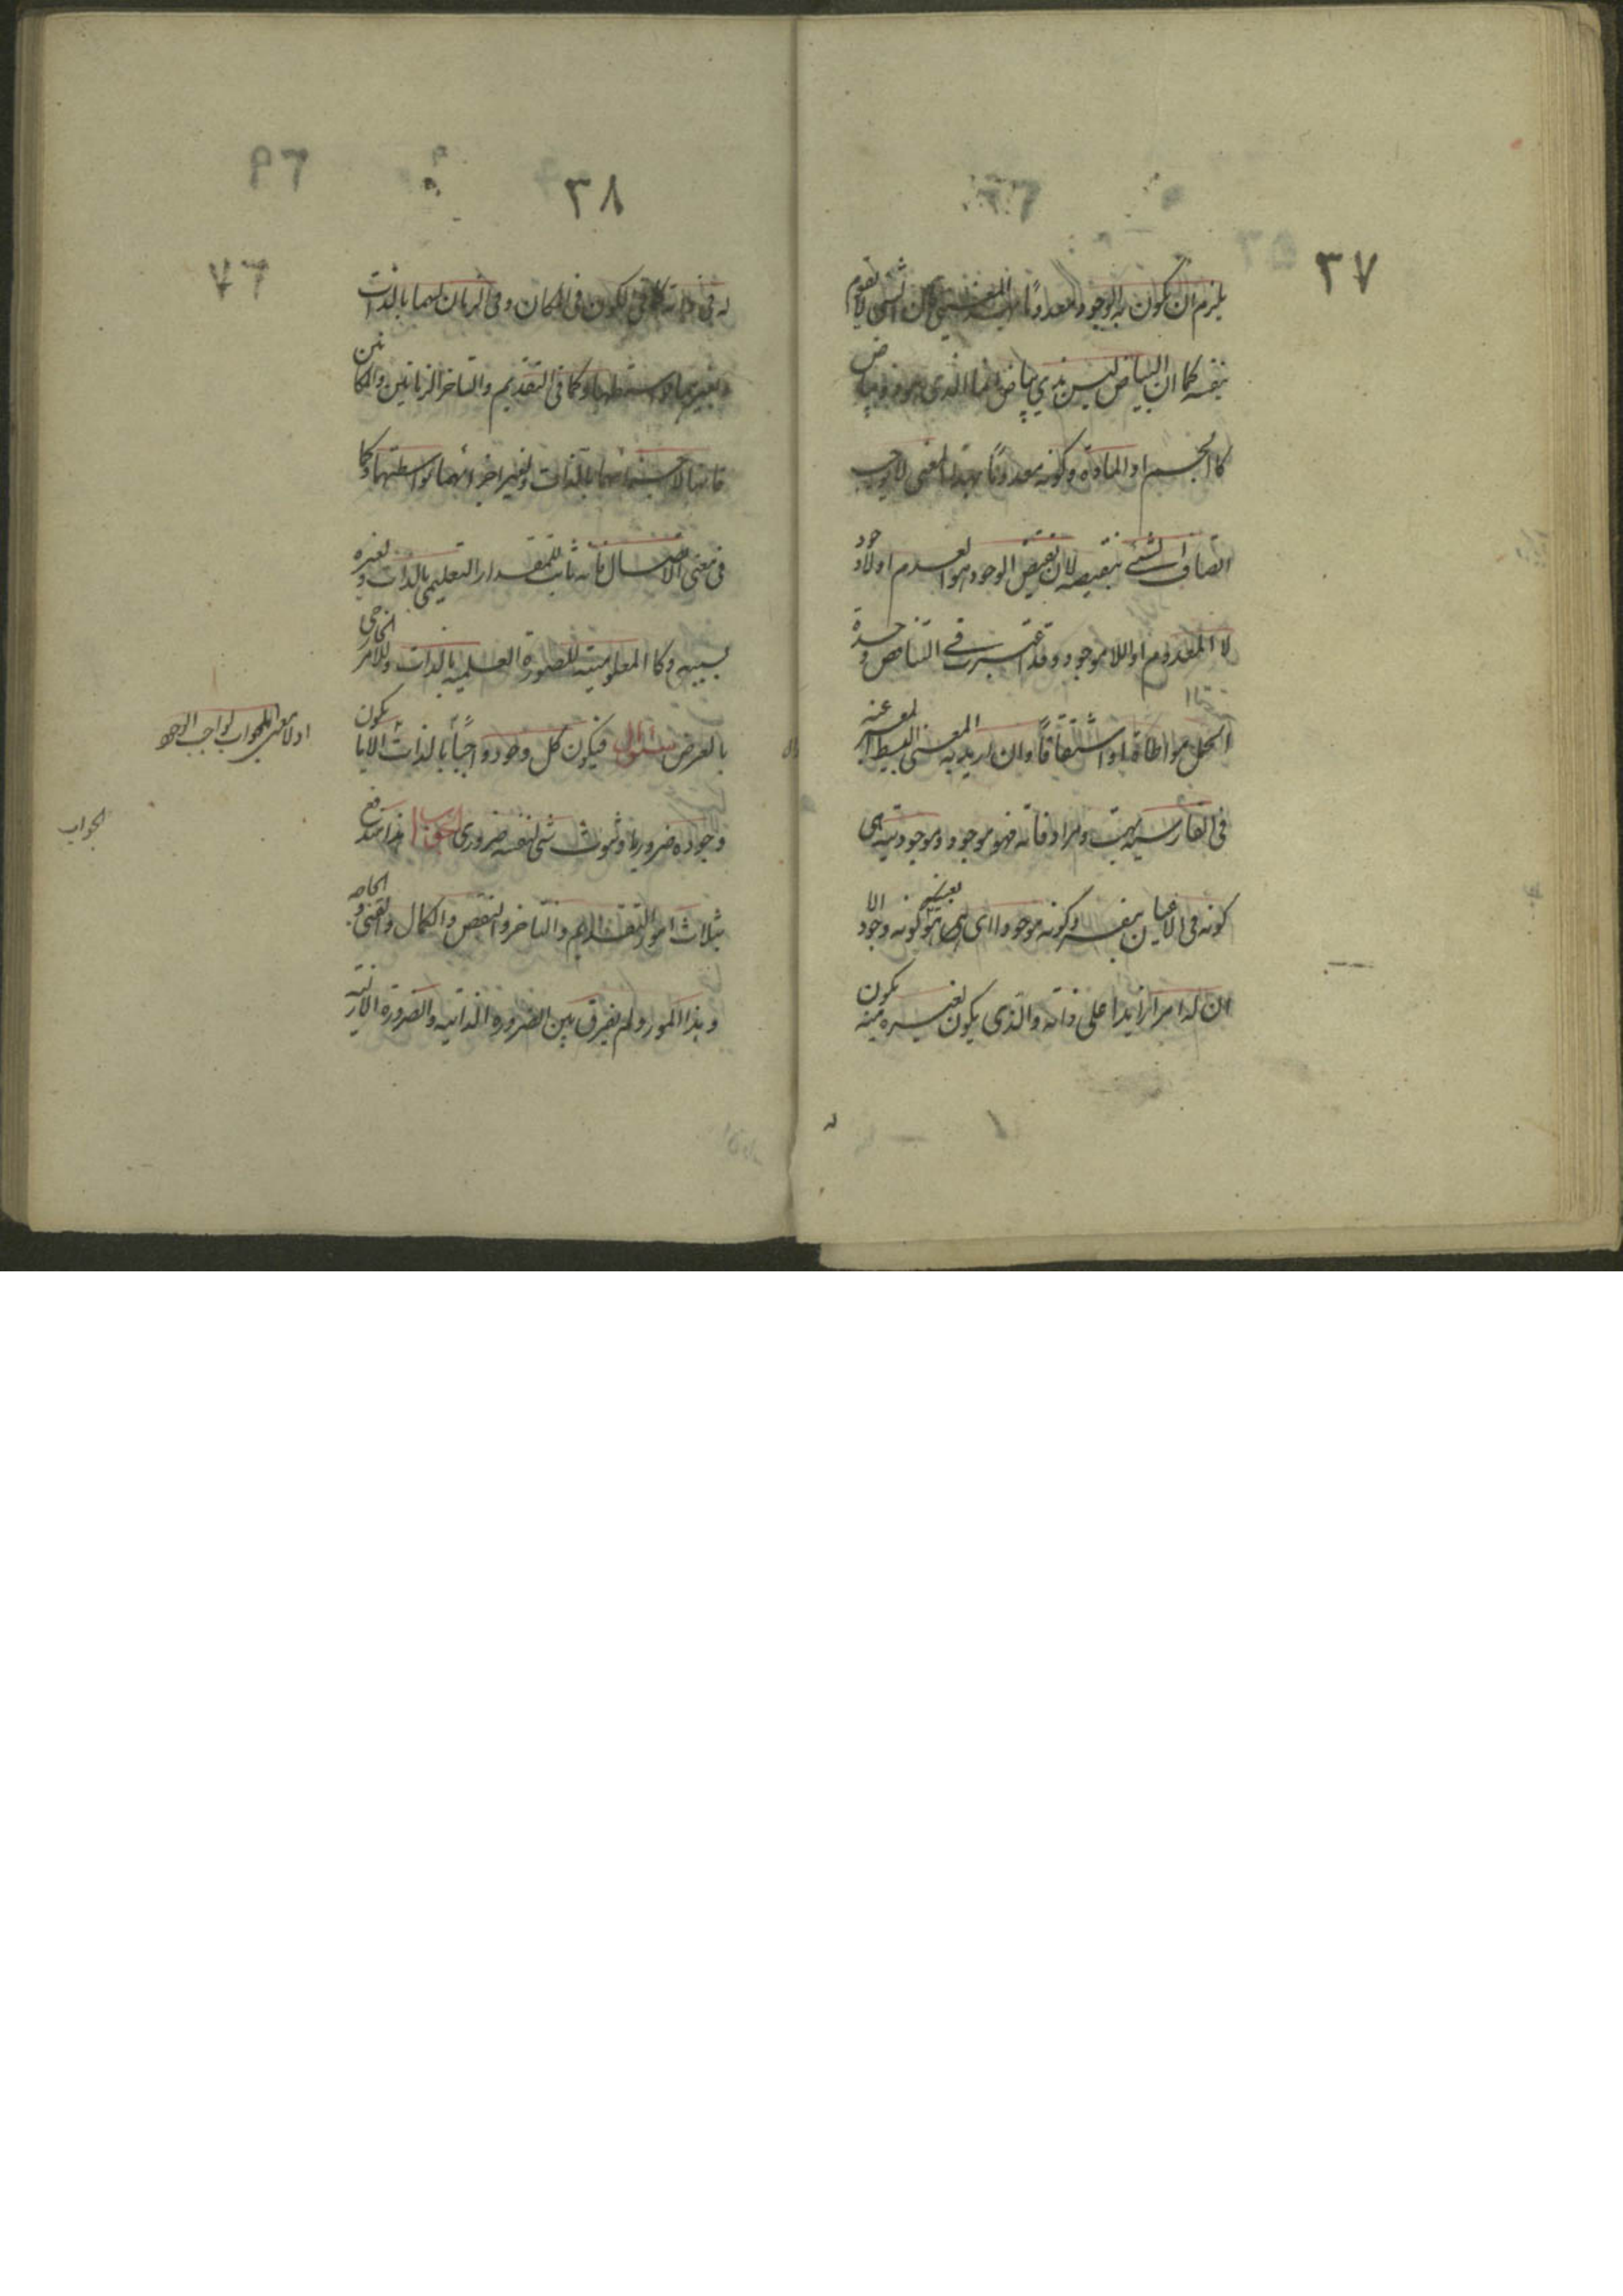 ٣٧
يلزم ان يكون الوجود معدوماً بهذا المعنى فان الشئ لا يقوم
بنفسه كما ان البياض ليس بذي بياض انما الذى هو ذو بياض
كا الجسم او المادة وكونه معدوماً بهذا المعنى لا يوجب
اتصاف الشئ بنقيضه لان نقيض الوجود هو العدم او لا وجود
لا المعدوم او اللاموجود وقد اعتبرت في التناقض وحدة
الحمل مواطاة او اشتقاقاً وان اريد به المعنى البسيط المعبر عنه
فى الفارسيه بهست ومرادفاته فهو موجود وموجوديته هى
كونه فى الاعيان بنفسه وكونه موجودا هى بعينه كونه وجود الا
ان له امرا زايدا على ذاته والذى يكون لغيره منه يكون
٣٨
٧٦
له فى ذاته كما فى الكون فى المكان وفى الزمان لهما بالذات
ولغيرهما بواسطتهما وكما فى التقديم والتاخر الزمانيين والمكانيين
فانهما لاجزائهما بالذات ولغير اجزائهما بواسطتهما وكما
فى معنى الاتصال فانه ثابت للمقدار التعليمى بالذات ولغيره
بسببه وكا المعلومية للصورة العلميه بالذات وللامر الخارجى
بالعرض سئوال فيكون كل وجود واجباً بالذات الا يا يكون
وجوده ضروريا وثبوت شئ لنفسه ضرورى الجواب هذا مندفع
بثلاث امور التقديم والتاخر والنقص والكمال والغنى والحاجه
وهذا المورد لم يفرق بين الضرورة الذاتيه والضرورة الازليه
الجواب